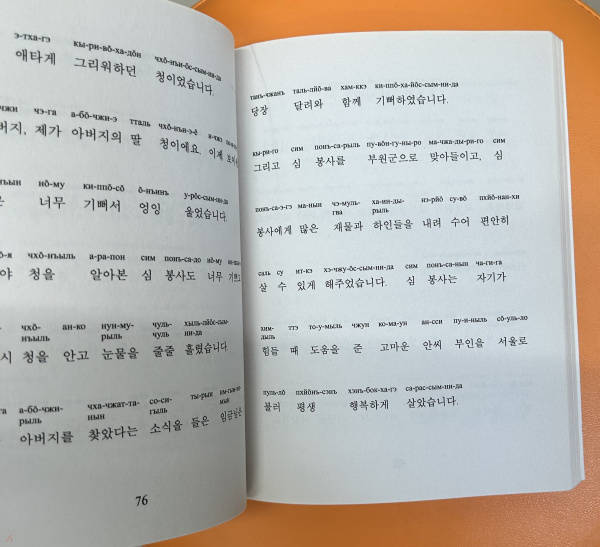 э-тха-гэ кы-ри-вŏ-ха-дŏн чхŏ-нъи-ŏс-сым-ни-да
애타게 그리워하던 청이었습니다.
чхŏ-га а-бŏ-чжи-э тталь
버지, 제가 아버지의 딸 청이에요. 이제
нŏ-му ки-ппŏ-сŏ ŏ-нъинъ у-рŏс-сым-ни-да
너무 기뻐서 엉잉 울었습니다.
чхŏ-нъыль а-ра-пон сим понъ-са-до нŏ-му
야 청을 알아본 심 봉사도 너무 기쁘고
чхŏ-нъыль ан-ко нун-му-рыль чуль-чуль хыль-лйŏс-сым-ни-да
시 청을 안고 눈물을 줄줄 흘렸습니다.
а-бŏ-чжи-рыль чха-чжат-та-нын со-си-гыль ты-рын
아버지를 찾았다는 소식을 들은 임금님은
76
танъ-чжанъ таль-лйŏ-ва хам-ккэ ки-ппŏ-хэ-йŏс-сым-ни-да
당장 달려와 함께 기뻐하였습니다.
кы-ри-го сим понъ-са-рыль пу-вŏн-гу-ны-ро ма-чжа-ды-ри-го сим
그리고 심 봉사를 부원군으로 맞아들이고, 심
понъ-са-э-гэ ма-нын чэ-муль-гва ха-ин-ды-рыль нэ-рйŏ су-ŏ пхйŏ-нан-хи
봉사에게 많은 재물과 하인들을 내려 수어 편안히
саль су ит-кэ хэ-чжу-ŏс-сым-ни-да сим понъ-са-нын ча-ги-га
살 수 있게 해주었습니다. 심 봉사는 자기가
хим-дыль ттэ то-у-мыль чжун ко-ма-ун ан-сси пу-и-ныль сŏ-уль-ло
힘들 때 도움을 준 고마운 안씨 부인을 서울로
пуль-лŏ пхйŏнъ-сэнъ хэнъ-бок-ха-гэ са-рас-сым-ни-да
불러 평생 행복하게 살았습니다.